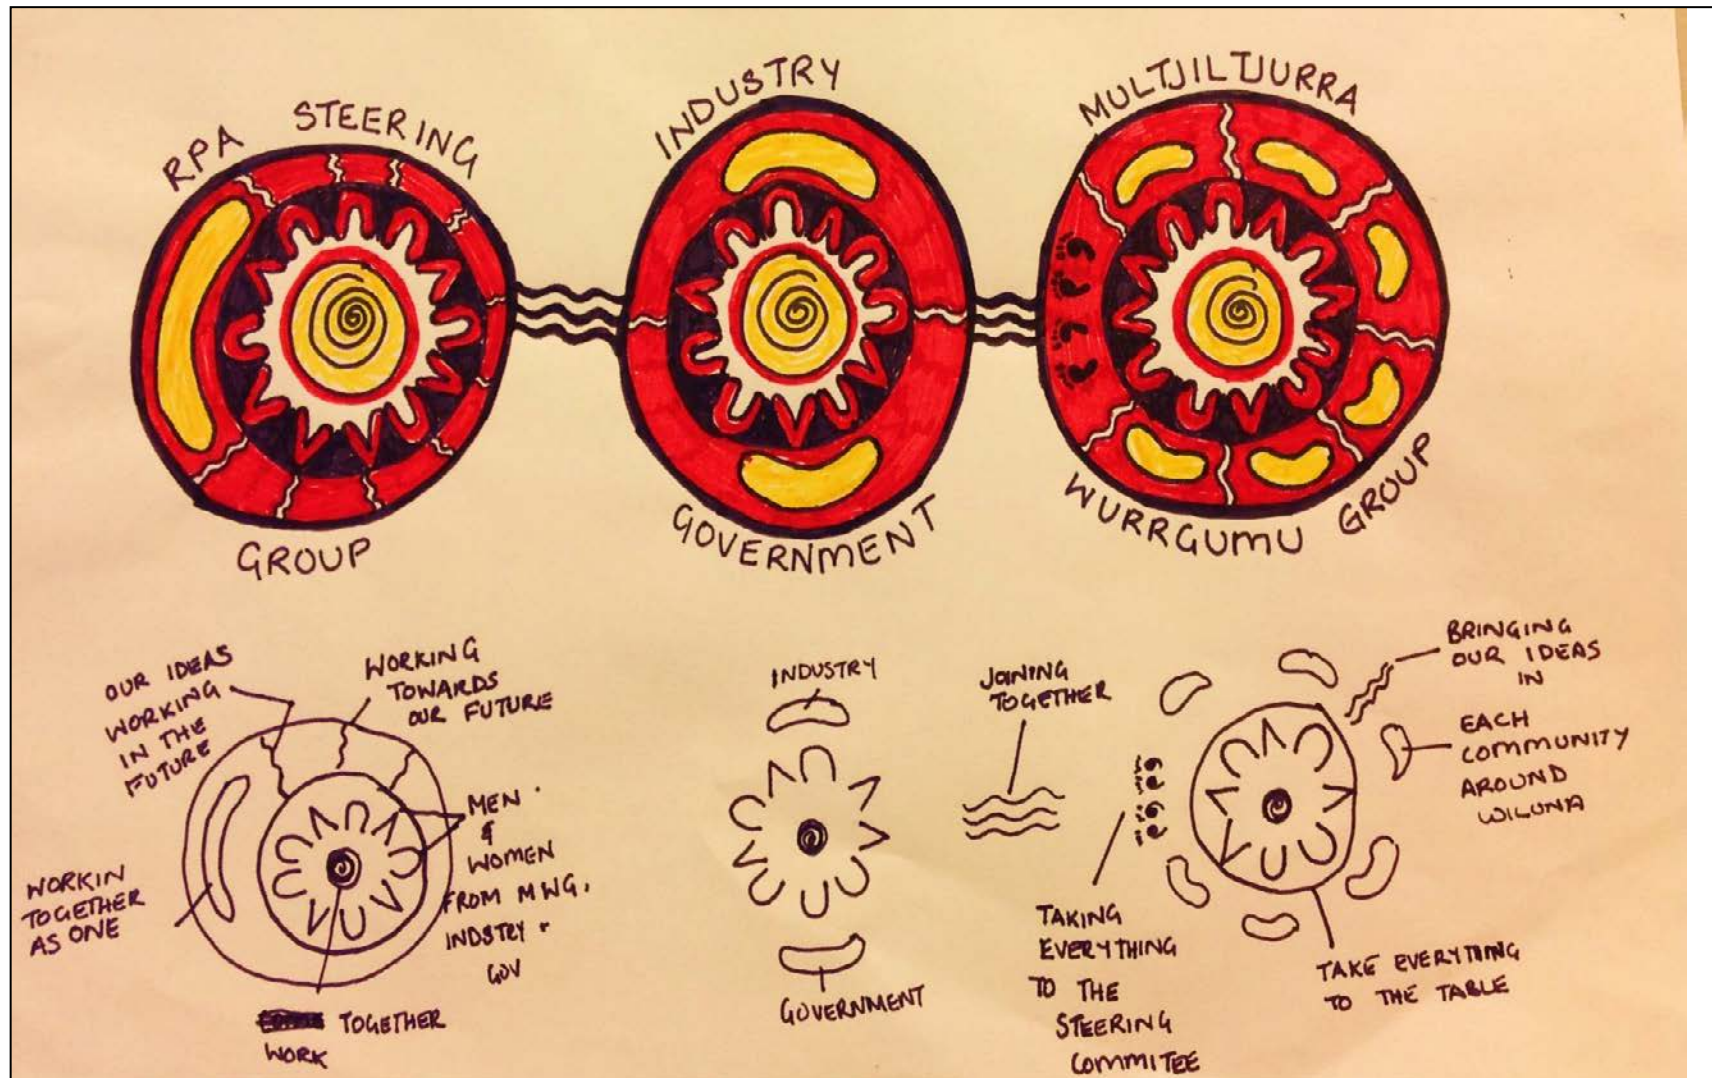 RPA STEERING
GROUP
INDUSTRY
GOVERNMENT
MULTJILTJURRA
WURRGUMU GROUP
OUR IDEAS
WORKING
IN THE
FUTURE
WORKING
TOWARDS
OUR FUTURE
MEN
&
WOMEN
FROM MWG,
INDSTRY
GOV
WORKIN
TOGETHER
AS ONE
TOGETHER
WORK
INDUSTRY
GOVERNMENT
JOINING
TOGETHER
TAKING
EVERYTHING
TO THE
STEERING
COMMITEE
BRINGING
OUR IDEAS
IN
EACH
COMMUNITY
AROUND
WILUNA
TAKE EVERYTHING
TO THE TABLE